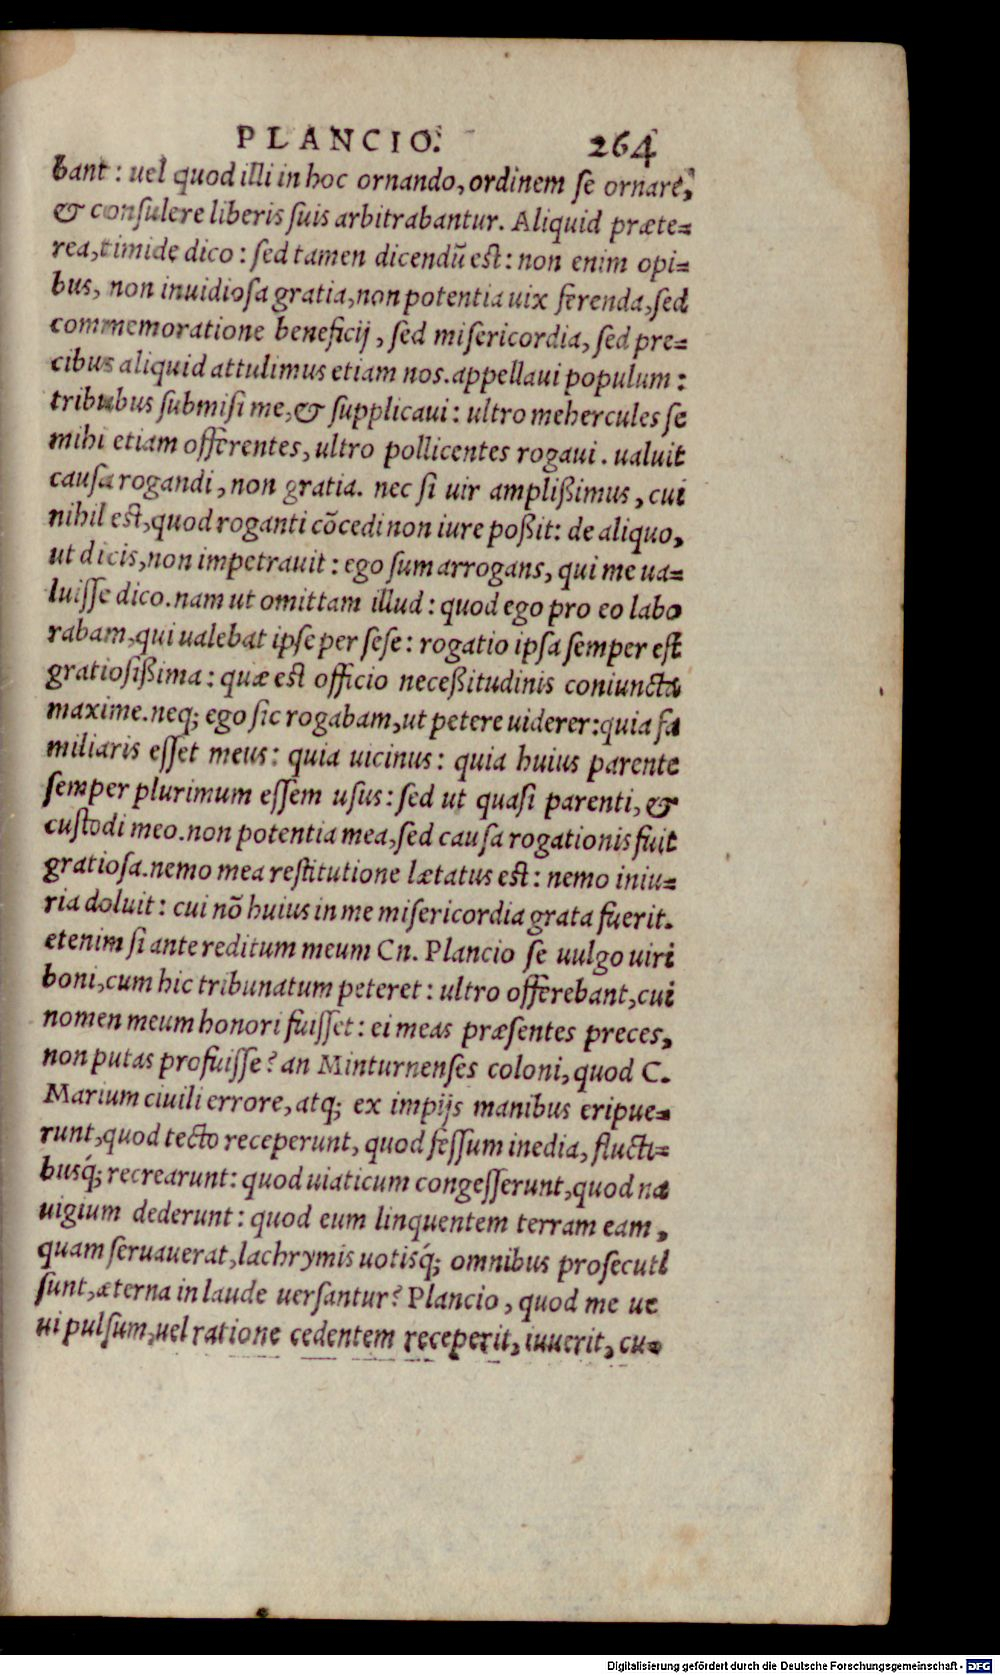 PLANCIO. 264
bant: uel quod illi in hoc ornando, ordinem se ornare,
& consulere liberis suis arbitrabantur. Aliquid præte=
rea, timide dico: sed tamen dicendũ est: non enim opi=
bus, non inuidiosa gratia, non potentia uix ferenda, sed
commemoratione beneficij, sed misericordia, sed pre=
cibus aliquid attulimus etiam nos. appellaui populum:
tribubus submisi me, & supplicaui: ultro mehercules se
mihi etiam offerentes, ultro pollicentes rogaui. ualuit
causa rogandi, non gratia. nec si uir amplißimus, cui
nihil est, quod roganti cõcedi non iure poßit: de aliquo,
ut dicis, non impetrauit: ego sum arrogans, qui me ua=
luisse dico. nam ut omittam illud: quod ego pro eo labo
rabam, qui ualebat ipse per sese: rogatio ipsa semper est
gratiosißima: quæ est officio neceßitudinis coniuncta
maxime. neq; ego sic rogabam, ut petere uiderer: quia fa
miliaris esset meus: quia uicinus: quia huius parente
semper plurimum essem usus: sed ut quasi parenti, &
custodi meo. non potentia mea, sed causa rogationis fuit
gratiosa. nemo mea restitutione lætatus est: nemo iniu=
ria doluit: cui nõ huius in me misericordia grata fuerit.
etenim si ante reditum meum Cn. Plancio se uulgo uiri
boni, cum hic tribunatum peteret: ultro offerebant, cui
nomen meum honori fuisset: ei meas præsentes preces,
non putas profuisse? an Minturnenses coloni, quod C.
Marium ciuili errore, atq; ex impijs manibus eripue=
runt, quod tecto receperunt, quod fessum inedia, flucti=
busq́; recrearunt: quod uiaticum congesserunt, quod na
uigium dederunt: quod eum linquentem terram eam,
quam seruauerat, lachrymis uotisq́; omnibus prosecuti
sunt, æterna in laude uersantur? Plancio, quod me ue
ui pulsum, uel ratione cedentem receperit, iuuerit, cu=
Digitalisierung gefördert durch die Deutsche Forschungsgemeinschaft - DFG